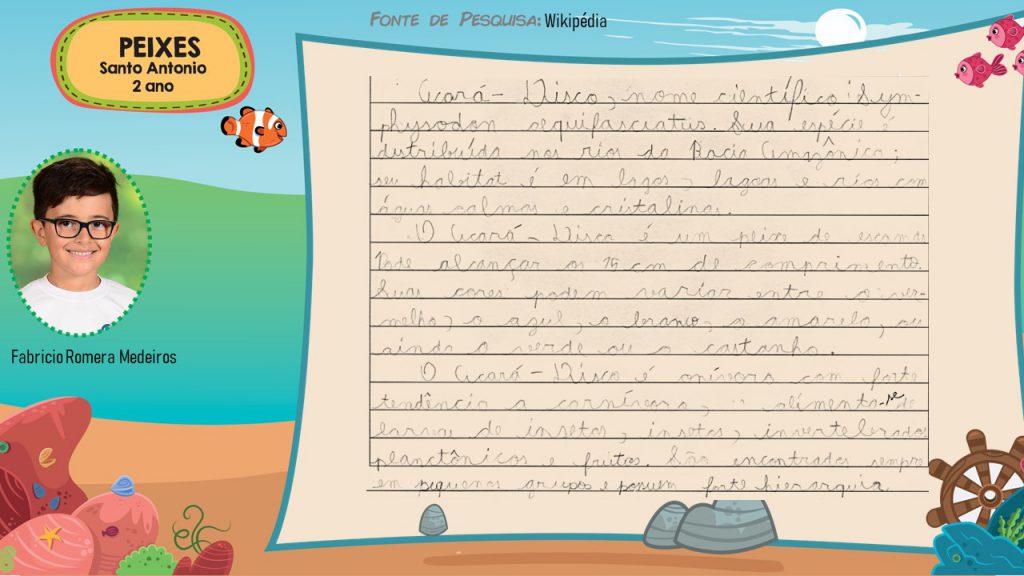 FONTE DE PESQUISA: Wikipédia
PEIXES
Santo Antonio
2 ano
Fabricio Romera Medeiros
Acará - Disco, nome científico Sym-
physodon aequifasciatus. Sua espécie é
distribuída nos rios da Bacia Amazônica;
seu habitat é em lagos, lagoas e rios com
águas calmas e cristalinas.
O Acará - Disco é um peixe de escamas
Pode alcançar os 15 cm de comprimento.
Suas cores podem variar entre o ver-
melho, o azul, o branco, o amarelo, ou
ainda o verde ou o castanho.
O Acará - Disco é onívoro com forte
tendência a carnívoro, alimenta-se de
larvas de insetos, insetos, invertebrados
planctônicos e frutos. São encontrados sempre
em pequenos grupos e possuem forte hierarquia